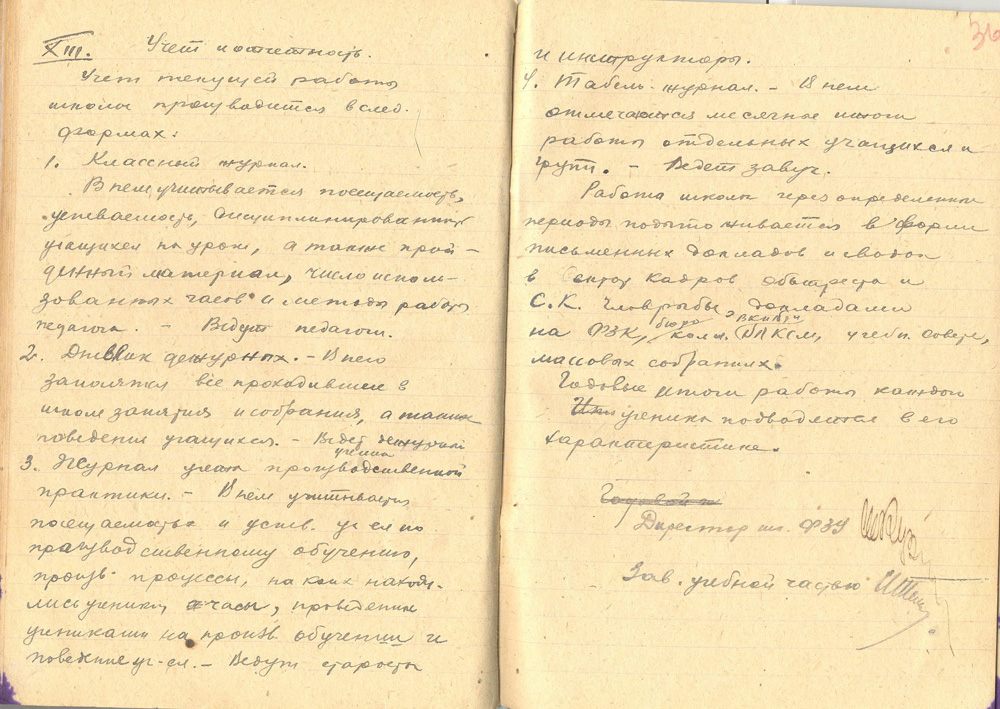 XIII. Учет и отчетность.
Учет текущей работы
школы производится в след.
формах:
1. Классный журнал.
В нем учитывается посещаемость,
успеваемость, дисциплинированность
учащихся на уроке, а также прой-
денный материал, число исполь-
зованных часов и методы работы
педагога. - Ведут педагоги.
2. Дневник дежурных. - В него
заносятся все проходившие в
школе занятия и собрания, а также
поведения учащихся. - Ведет дежурный
ученик
3. Журнал учета производственной
практики. - В нем учитывается
посещаемость и успев. уч-ся по
производственному обучению,
произв. процессы, на коих находи-
лись ученики, часы, проведенные
учениками на произв. обучении и
поведение уч-ся. - Ведут старосты
36
и инструкторы.
4. Табель-журнал. - В нем
отмечаются месячные итоги
работы отдельных учащихся и
групп. - Ведет завуч.
Работа школы через определенные
периоды подытоживается в форме
письменных докладов и сводок
в сектор кадров и
С.К. , докладами
бюро ВКП(б) и
на ФЗК, колл. ВЛКСМ, учебн. совете,
массовых собраниях.
Годовые итоги работы каждого
ученика подводятся в его
характеристике.
Годовой
Директор шк. ФЗУ
Зав. учебной частью